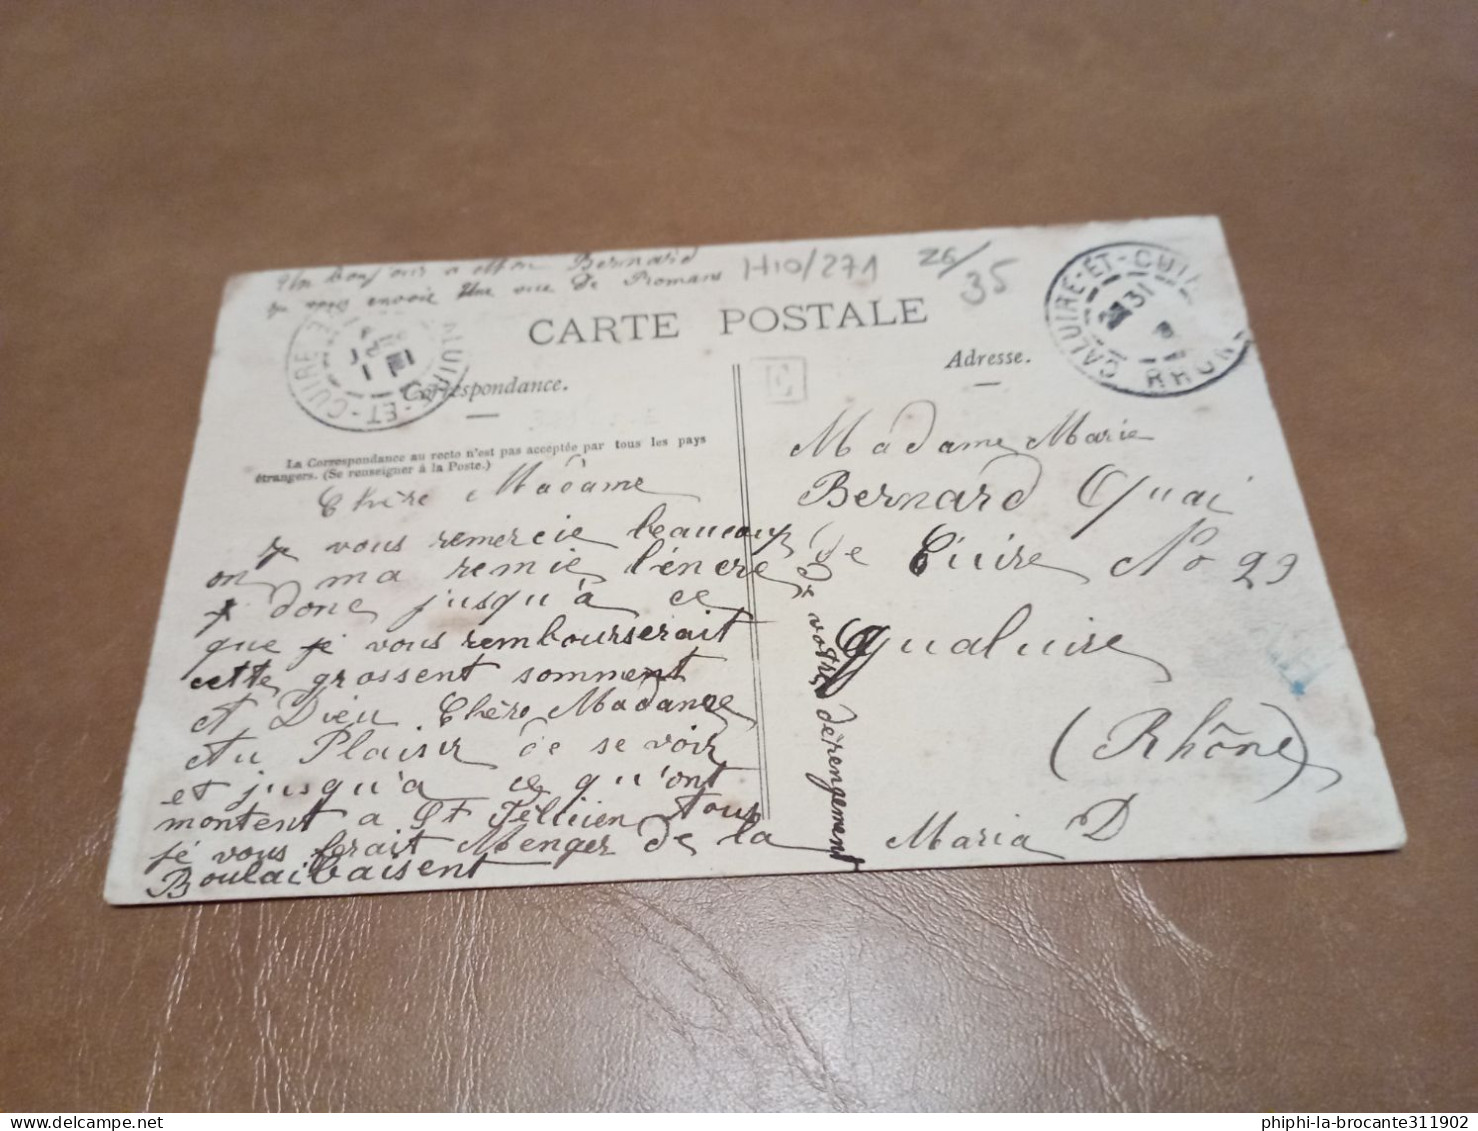 Un bonjour a Mon Bernard
je vous envoie Une vue de Romans
H10/271
26/35
CARTE POSTALE
Correspondance.
Adresse.
E
La Correspondance au recto n'est pas acceptée par tous les pays
étrangers. (Se renseigner à la Poste.)
CALUIRE-ET-CUIRE
CALUIRE-ET-CUIRE
31
RHONE
Chère Madame
je vous remercie beaucoup
on ma remie l'encre
je donc jusqu'à ce
que je vous rembourserait
cette grossent somment
A Dieu Chère Madame
Au Plaisir de se voir
et jusqu'a ce qu'ont
montent a StFéllicien tous
je vous ferait Menger de la
Boulaibaisent
de votre dérengement
Madame Marie
Bernard Quai
de Cuire No 29
Qualuire
(Rhône)
Maria D
phiphi-la-brocante311902